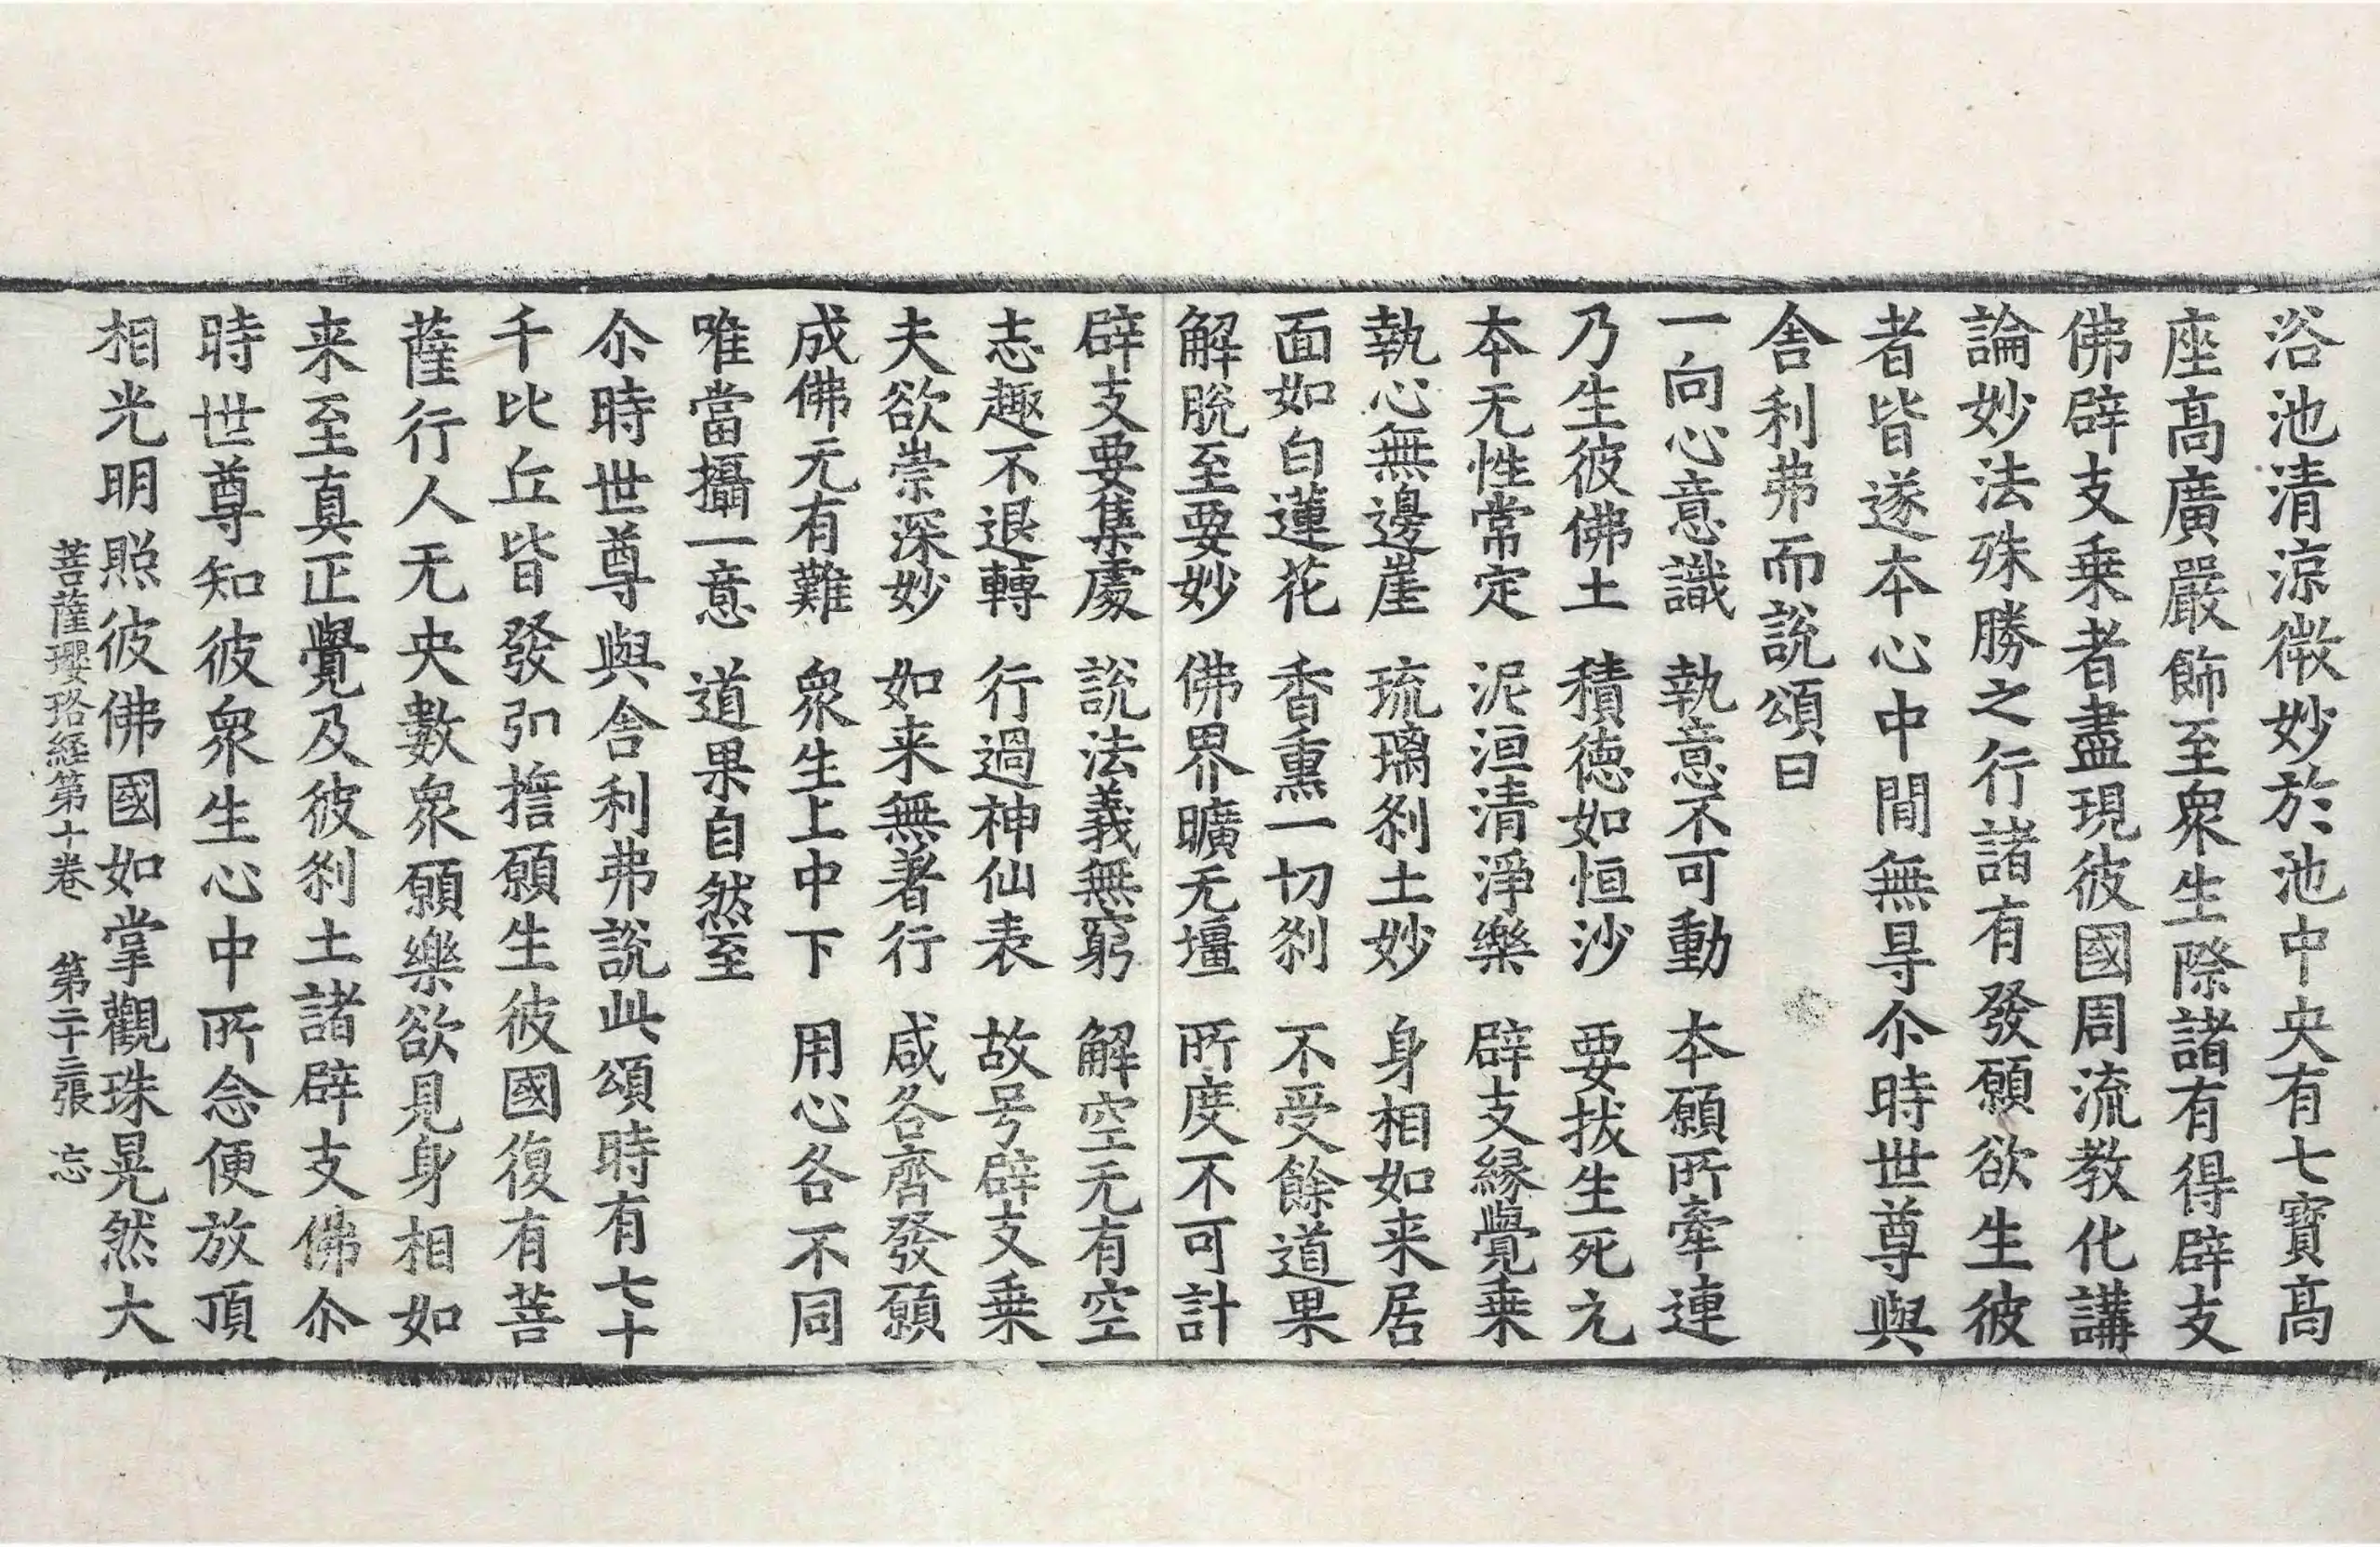 浴池清涼微妙於池中央有七寶高
座高廣嚴飾至衆生際諸有得辟支
佛辟支乗者盡現彼國周流教化講
論妙法殊勝之行諸有發願欲生彼
者皆遂本心中間無㝵尒時世尊與
舎利弗而說頌曰
一向心意識 執意不可動 本願所牽連
乃生彼佛土 積徳如恒沙 要拔生死亢
本无性常定 泥洹清淨樂 辟支縁覺乗
執心無邊崖 琉璃刹土妙 身相如来居
面如白蓮花 香熏一切刹 不受餘道果
解脫至要妙 佛界曠无壃 所度不可計
辟支要集處 說法義無窮 解空无有空
志趣不退轉 行過神仙表 故号辟支乗
夫欲崇深妙 如来無著行 咸各齊發願
成佛元有難 衆生上中下 用心各不同
唯當攝一意 道果自然至
尒時世尊與舎利弗說此頌時有七十
千比丘皆發弘擔願生彼國復有菩
薩行人无央數衆願樂欲見身相如
来至真正覺及彼刹土諸辟支佛尒
時世尊知彼衆生心中所念便放頂
相光明照彼佛國如掌觀珠晃然大
菩薩瓔珞経第十卷 第二十三張 忘